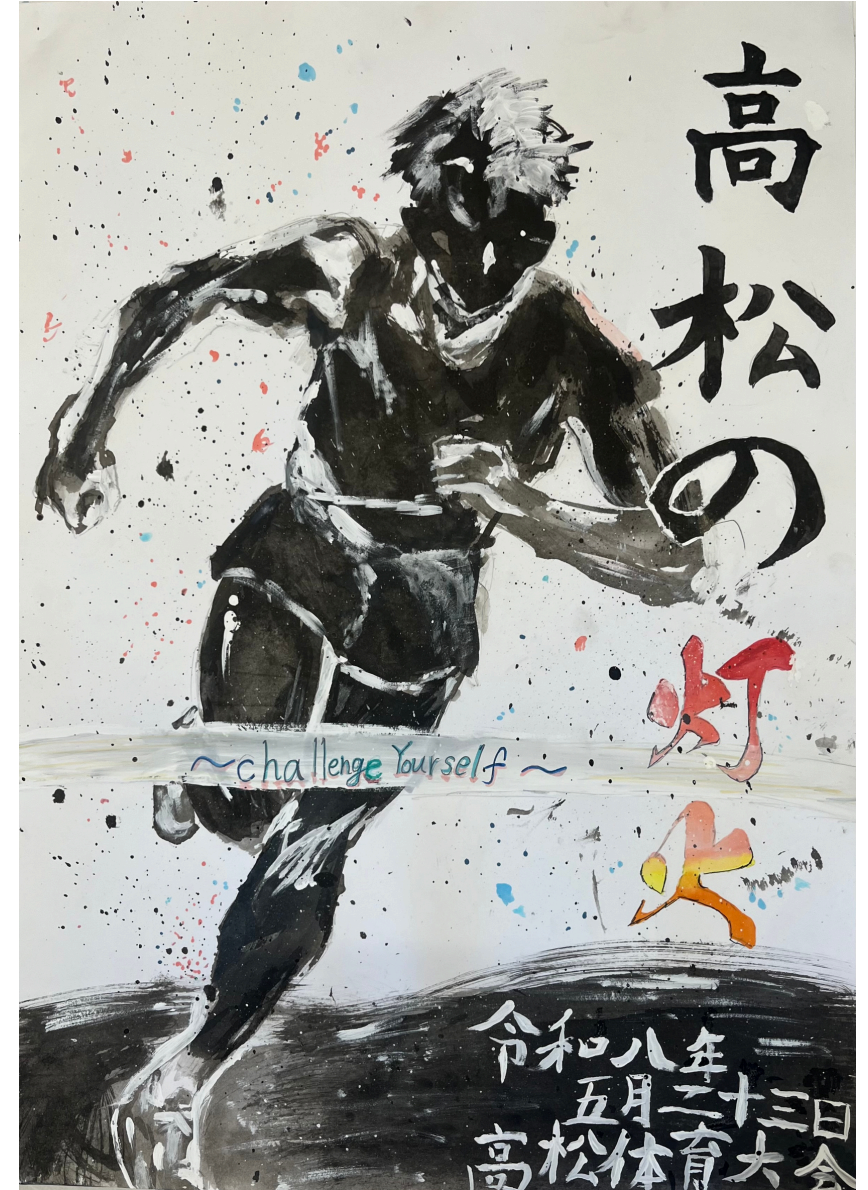 高松の灯火
～challenge Yourself～
令和八年
五月二十三日
高松体育大会